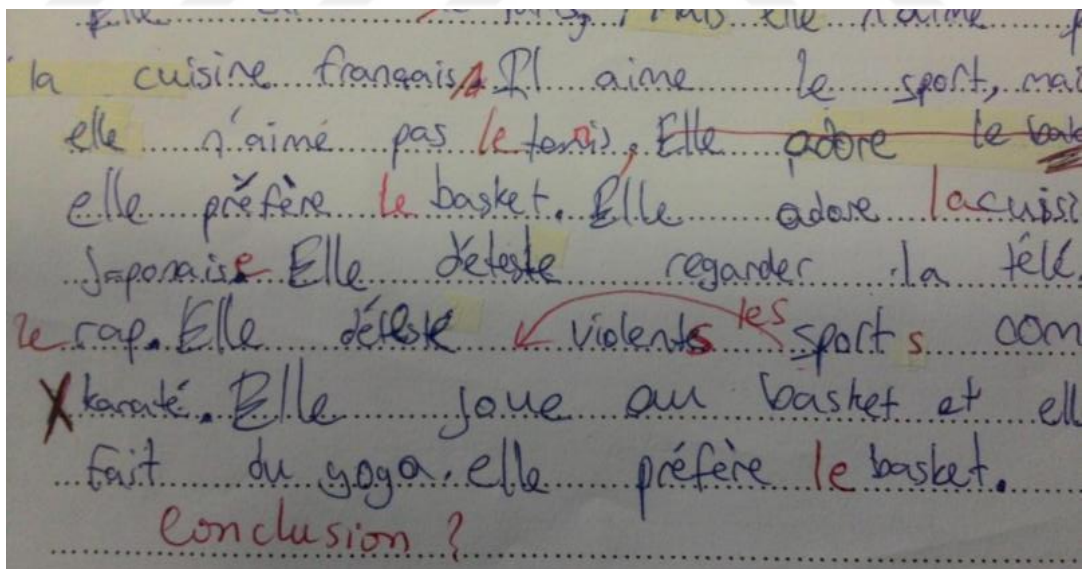 Elle mais elle n'aime p
la cuisine français. Il aime le sport, mai
elle n'aime pas le tennis. Elle adore le bak
elle préfère le basket. Elle adore la cuisi
Japonaise Elle déteste regarder la télé.
le rap. Elle déteste violents les sports com
X karaté. Elle joue au basket et ell
fait du yoga. elle préfère le basket.
Conclusion ?